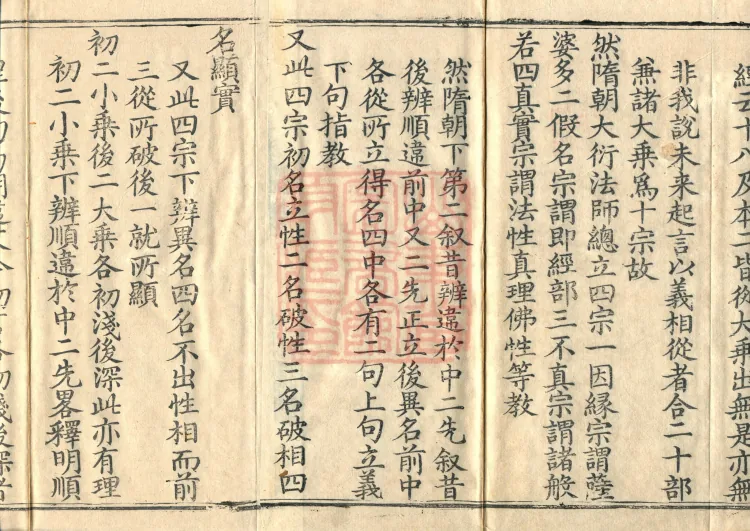 經云十八及本二皆從大乗出無是亦無
非我說未来起言以義相從者合二十部
兼諸大乗爲十宗故
然隋朝大衍法師總立四宗一因緣宗謂薩
婆多二假名宗謂即經部三不真宗謂諸般
若四真實宗謂法性真理佛性等教
然隋朝下第二叙昔辨違於中二先叙昔
後辨順違前中又二先正立後異名前中
各從所立得名四中各有二句上句立義
下句指教
又此四宗初名立性二名破性三名破相四
名顯實
又此四宗下辨異名四名不出性相而前
三從所破後一就所顯
初二小乗後二大乗各初淺後深此亦有理
初二小乗下辨順違於中二先畧釋明順